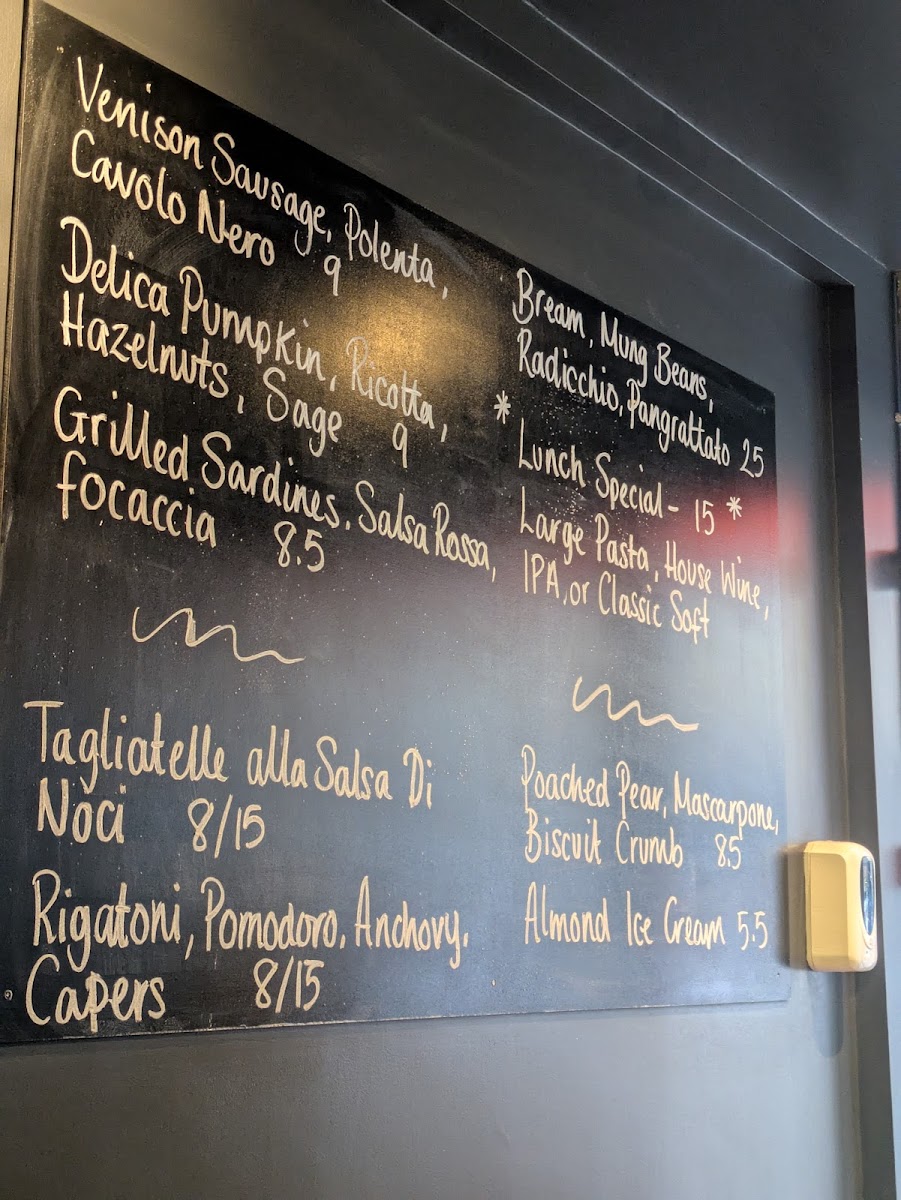 Venison Sausage, Polenta,
Cavolo Nero 9
Delica Pumpkin, Ricotta,
Hazelnuts, Sage 9
Grilled Sardines, Salsa Rossa,
focaccia 8.5
Tagliatelle alla Salsa Di
Noci 8/15
Rigatoni, Pomodoro, Anchovy,
Capers 8/15
Bream, Mung Beans,
Radicchio, Pangrattato 25
* Lunch Special - 15 *
Large Pasta, House Wine,
IPA, or Classic Soft
Poached Pear, Mascarpone,
Biscuit Crumb 8.5
Almond Ice Cream 5.5